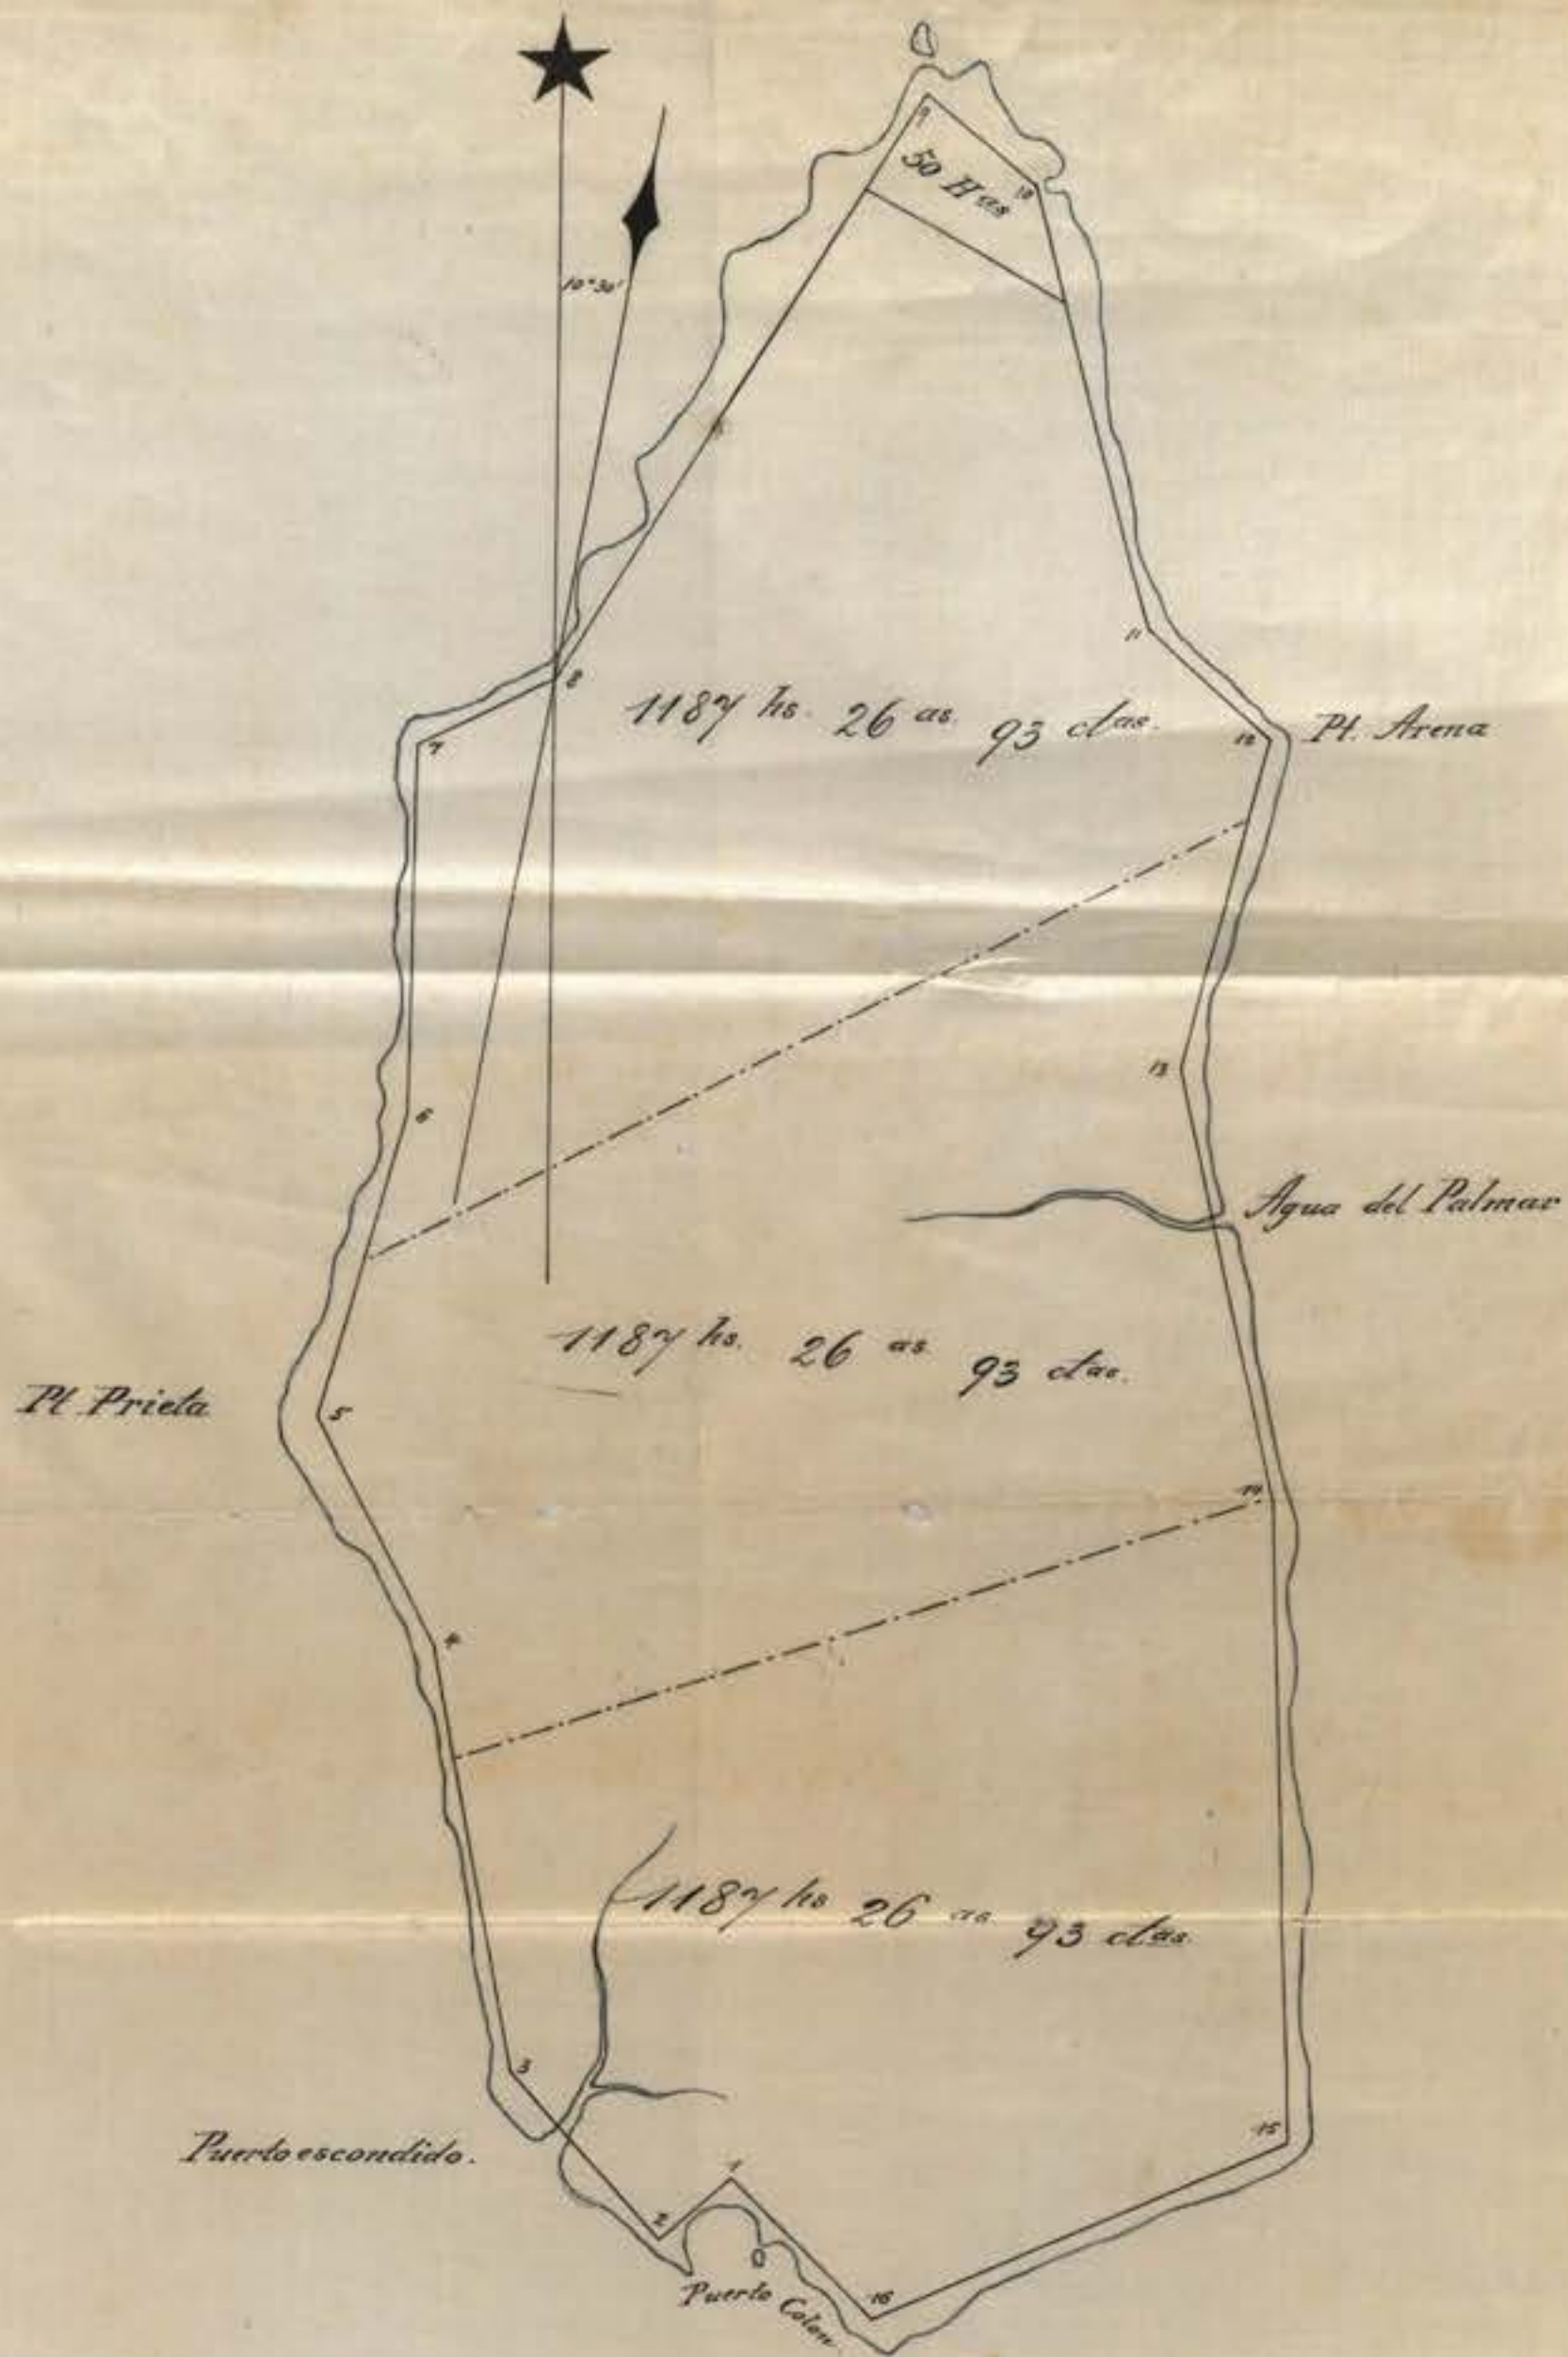 9
50 Has
10
10°30'
11
8
1187 hs. 26 as. 93 ctas.
12
Pt. Arena
7
13
6
Agua del Palmar
1187 hs. 26 as. 93 ctas.
Pt. Prieta
5
14
4
1187 hs 26 as 93 ctas.
3
15
Puerto escondido.
1
2
16
Puerto Colon